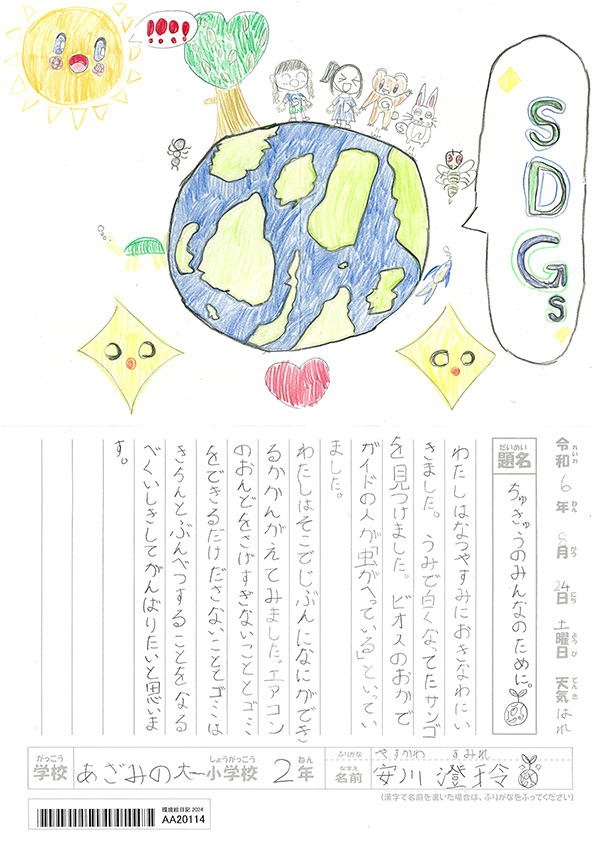 !!!!
SDGs
令和6年8月24日土曜日 天気 はれ
れいわ ねん がつ にち ようび てんき
だいめい
題名 ちゅきゅうのみんなのために。
わたしはなつやすみにおきなわにい
きました。うみで白くなってたサンゴ
を見つけました。ビオスのおかで
ガイドの人が「虫がへっている」といってい
ました。
わたしはそこでじぶんになにができ
るかかんがえてみました。エアコン
のおんどをさげすぎないこととゴミ
をできるだけださないこととゴミは
きちんとぶんべつすることをなる
べくいしきしてがんばりたいと思いま
す。
がっこう しょうがっこう ねん ふりがな やすかわ すみれ
学校 あざみの大一小学校 2年 なまえ 名前 安川 澄玲
(漢字で名前を書いた場合は、ふりがなをふってください)
環境絵日記2024
AA20114